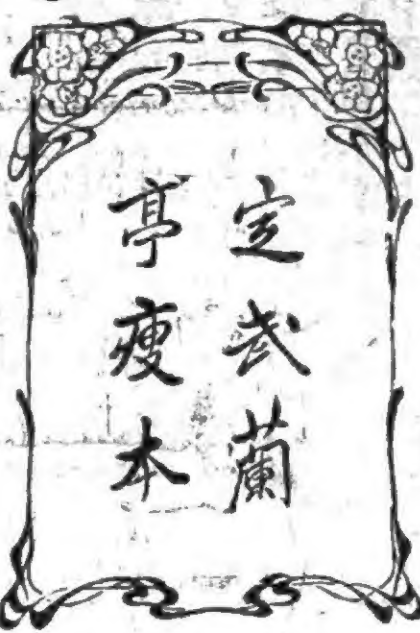 定武蘭
亭瘦本